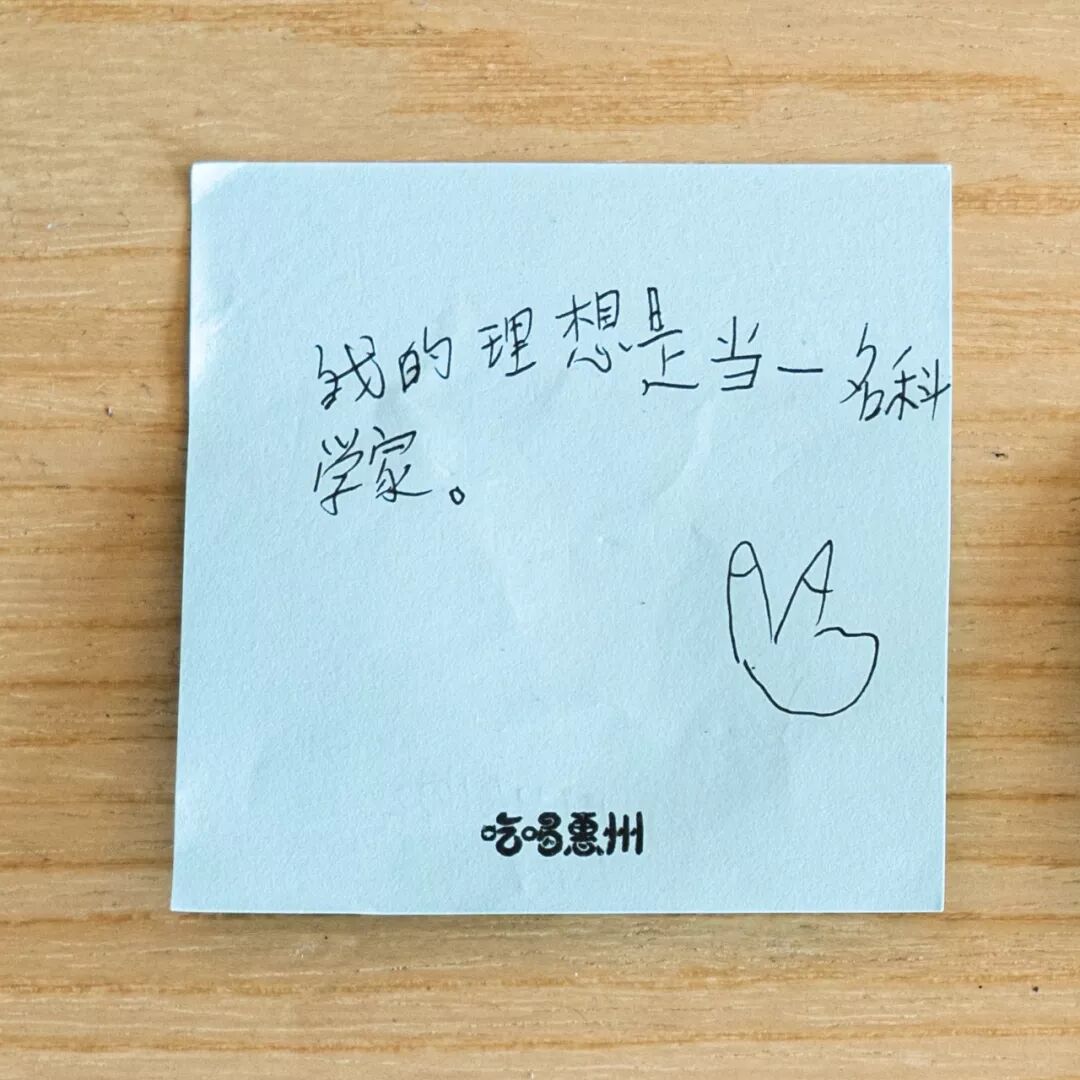 我的理想是当一名科
学家。
吃喝惠州